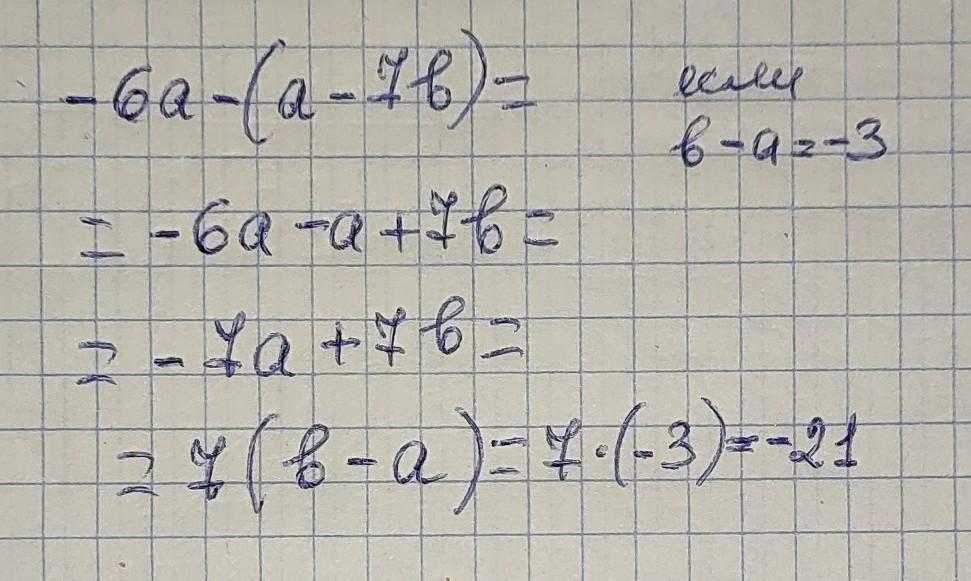 -6a-(a-7b)=
если
b-a=-3
= -6a-a+7b=
= -7a+7b=
= 7(b-a)=7·(-3)=-21